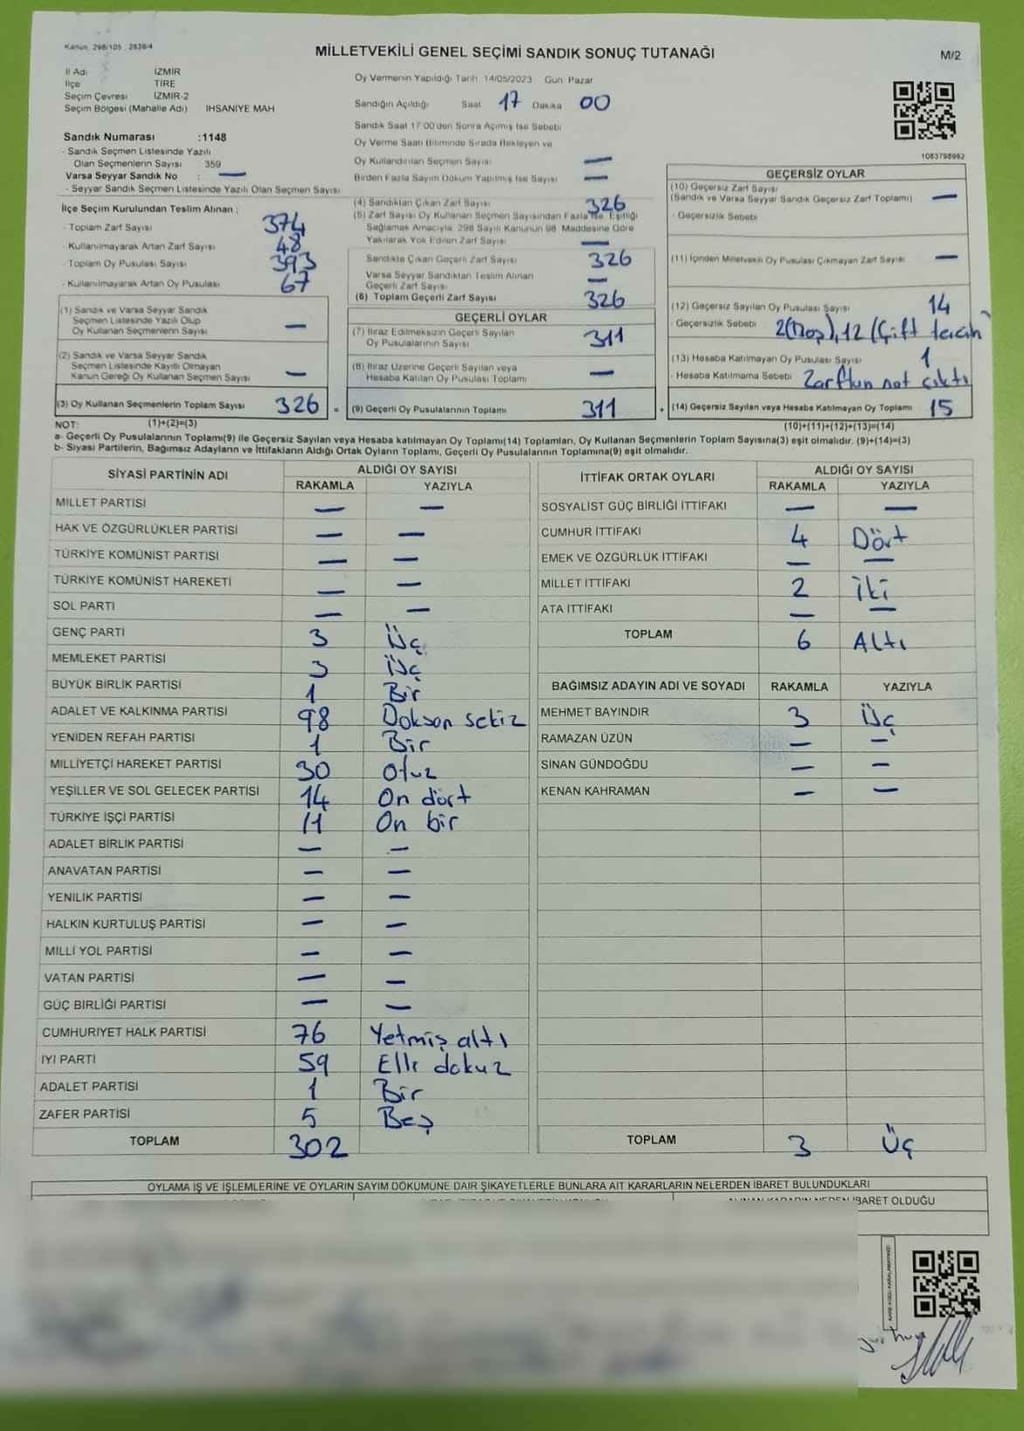 Kanun: 298/105 ; 2839/4
MİLLETVEKİLİ GENEL SEÇİMİ SANDIK SONUÇ TUTANAĞI
M/2
İl Adı İZMİR
İlçe TİRE
Seçim Çevresi İZMİR-2
Seçim Bölgesi (Mahalle Adı) İHSANİYE MAH
Sandık Numarası :1148
- Sandık Seçmen Listesinde Yazılı
Olan Seçmenlerin Sayısı 359
Varsa Seyyar Sandık No : —
- Seyyar Sandık Seçmen Listesinde Yazılı Olan Seçmen Sayısı
Oy Vermenin Yapıldığı Tarih: 14/05/2023 Gün: Pazar
Sandığın Açıldığı Saat 17 Dakika 00
Sandık Saat 17:00'den Sonra Açılmış İse Sebebi
Oy Verme Saati Bitiminde Sırada Bekleyen ve
Oy Kullandırılan Seçmen Sayısı —
Birden Fazla Sayım Döküm Yapılmış İse Sayısı —
1083798992
İlçe Seçim Kurulundan Teslim Alınan :
- Toplam Zarf Sayısı 374
- Kullanılmayarak Artan Zarf Sayısı 48
- Toplam Oy Pusulası Sayısı 393
- Kullanılmayarak Artan Oy Pusulası 67
(1) Sandık ve Varsa Seyyar Sandık
Seçmen Listesinde Yazılı Olup
Oy Kullanan Seçmenlerin Sayısı —
(2) Sandık ve Varsa Seyyar Sandık
Seçmen Listesinde Kayıtlı Olmayan
Kanun Gereği Oy Kullanan Seçmen Sayısı —
(3) Oy Kullanan Seçmenlerin Toplam Sayısı 326
(4) Sandıktan Çıkan Zarf Sayısı 326
(5) Zarf Sayısı Oy Kullanan Seçmen Sayısından Fazla İse, Eşitliği
Sağlamak Amacıyla 298 Sayılı Kanunun 98. Maddesine Göre
Yakılarak Yok Edilen Zarf Sayısı —
Sandıkta Çıkan Geçerli Zarf Sayısı 326
Varsa Seyyar Sandıktan Teslim Alınan
Geçerli Zarf Sayısı —
(6) Toplam Geçerli Zarf Sayısı 326
GEÇERLİ OYLAR
(7) İtiraz Edilmeksizin Geçerli Sayılan
Oy Pusulalarının Sayısı 311
(8) İtiraz Üzerine Geçerli Sayılan veya
Hesaba Katılan Oy Pusulası Toplamı —
= (9) Geçerli Oy Pusulalarının Toplamı 311
GEÇERSİZ OYLAR
(10) Geçersiz Zarf Sayısı
(Sandık ve Varsa Seyyar Sandık Geçersiz Zarf Toplamı) —
- Geçersizlik Sebebi
(11) İçinden Milletvekili Oy Pusulası Çıkmayan Zarf Sayısı —
(12) Geçersiz Sayılan Oy Pusulası Sayısı 14
- Geçersizlik Sebebi 2(Boş), 12 (Çift tercih
(13) Hesaba Katılmayan Oy Pusulası Sayısı 1
- Hesaba Katılmama Sebebi Zarftan not çıktı
+ (14) Geçersiz Sayılan veya Hesaba Katılmayan Oy Toplamı 15
NOT: (1)+(2)=(3) (10)+(11)+(12)+(13)=(14)
a- Geçerli Oy Pusulalarının Toplamı(9) ile Geçersiz Sayılan veya Hesaba katılmayan Oy Toplamı(14) Toplamları, Oy Kullanan Seçmenlerin Toplam Sayısına(3) eşit olmalıdır. (9)+(14)=(3)
b- Siyasi Partilerin, Bağımsız Adayların ve İttifakların Aldığı Ortak Oyların Toplamı, Geçerli Oy Pusulalarının Toplamına(9) eşit olmalıdır.
SİYASİ PARTİNİN ADI ALDIĞI OY SAYISI
RAKAMLA YAZIYLA
MİLLET PARTİSİ — —
HAK VE ÖZGÜRLÜKLER PARTİSİ — —
TÜRKİYE KOMÜNİST PARTİSİ — —
TÜRKİYE KOMÜNİST HAREKETİ — —
SOL PARTİ — —
GENÇ PARTİ 3 Üç
MEMLEKET PARTİSİ 3 Üç
BÜYÜK BİRLİK PARTİSİ 1 Bir
ADALET VE KALKINMA PARTİSİ 98 Doksan sekiz
YENİDEN REFAH PARTİSİ 1 Bir
MİLLİYETÇİ HAREKET PARTİSİ 30 Otuz
YEŞİLLER VE SOL GELECEK PARTİSİ 14 On dört
TÜRKİYE İŞÇİ PARTİSİ 11 On bir
ADALET BİRLİK PARTİSİ — —
ANAVATAN PARTİSİ — —
YENİLİK PARTİSİ — —
HALKIN KURTULUŞ PARTİSİ — —
MİLLİ YOL PARTİSİ — —
VATAN PARTİSİ — —
GÜÇ BİRLİĞİ PARTİSİ — —
CUMHURİYET HALK PARTİSİ 76 Yetmiş altı
İYİ PARTİ 59 Elli dokuz
ADALET PARTİSİ 1 Bir
ZAFER PARTİSİ 5 Beş
TOPLAM 302
İTTİFAK ORTAK OYLARI ALDIĞI OY SAYISI
RAKAMLA YAZIYLA
SOSYALİST GÜÇ BİRLİĞİ İTTİFAKI — —
CUMHUR İTTİFAKI 4 Dört
EMEK VE ÖZGÜRLÜK İTTİFAKI — —
MİLLET İTTİFAKI 2 İki
ATA İTTİFAKI — —
TOPLAM 6 Altı
BAĞIMSIZ ADAYIN ADI VE SOYADI RAKAMLA YAZIYLA
MEHMET BAYINDIR 3 Üç
RAMAZAN ÜZÜN — —
SİNAN GÜNDOĞDU — —
KENAN KAHRAMAN — —
TOPLAM 3 Üç
OYLAMA İŞ VE İŞLEMLERİNE VE OYLARIN SAYIM DÖKÜMÜNE DAİR ŞİKAYETLERLE BUNLARA AİT KARARLARIN NELERDEN İBARET BULUNDUKLARI
ALINAN KARARIN NEDEN İBARET OLDUĞU